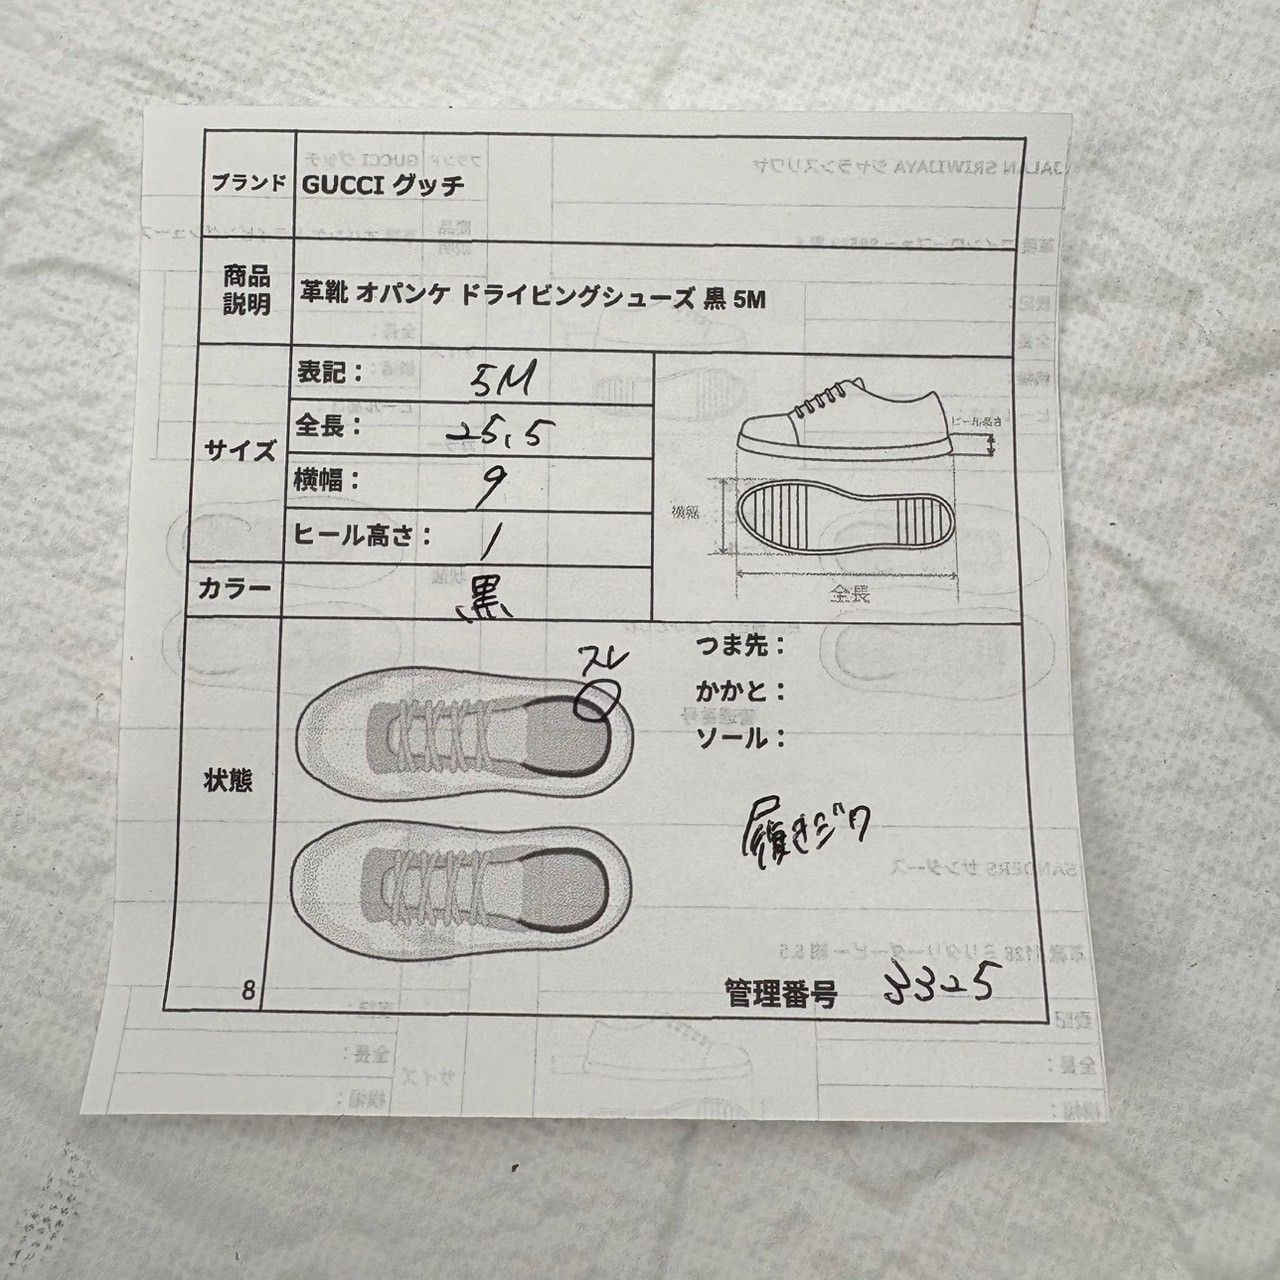 ブランド GUCCI グッチ
商品説明 革靴 オパンケ ドライビングシューズ 黒 5M
サイズ
表記： 5M
全長： 25.5
横幅： 9
ヒール高さ： 1
ヒール高さ
横幅
全長
カラー 黒
状態
スレ
つま先：
かかと：
ソール：
履きジワ
8
管理番号 3325